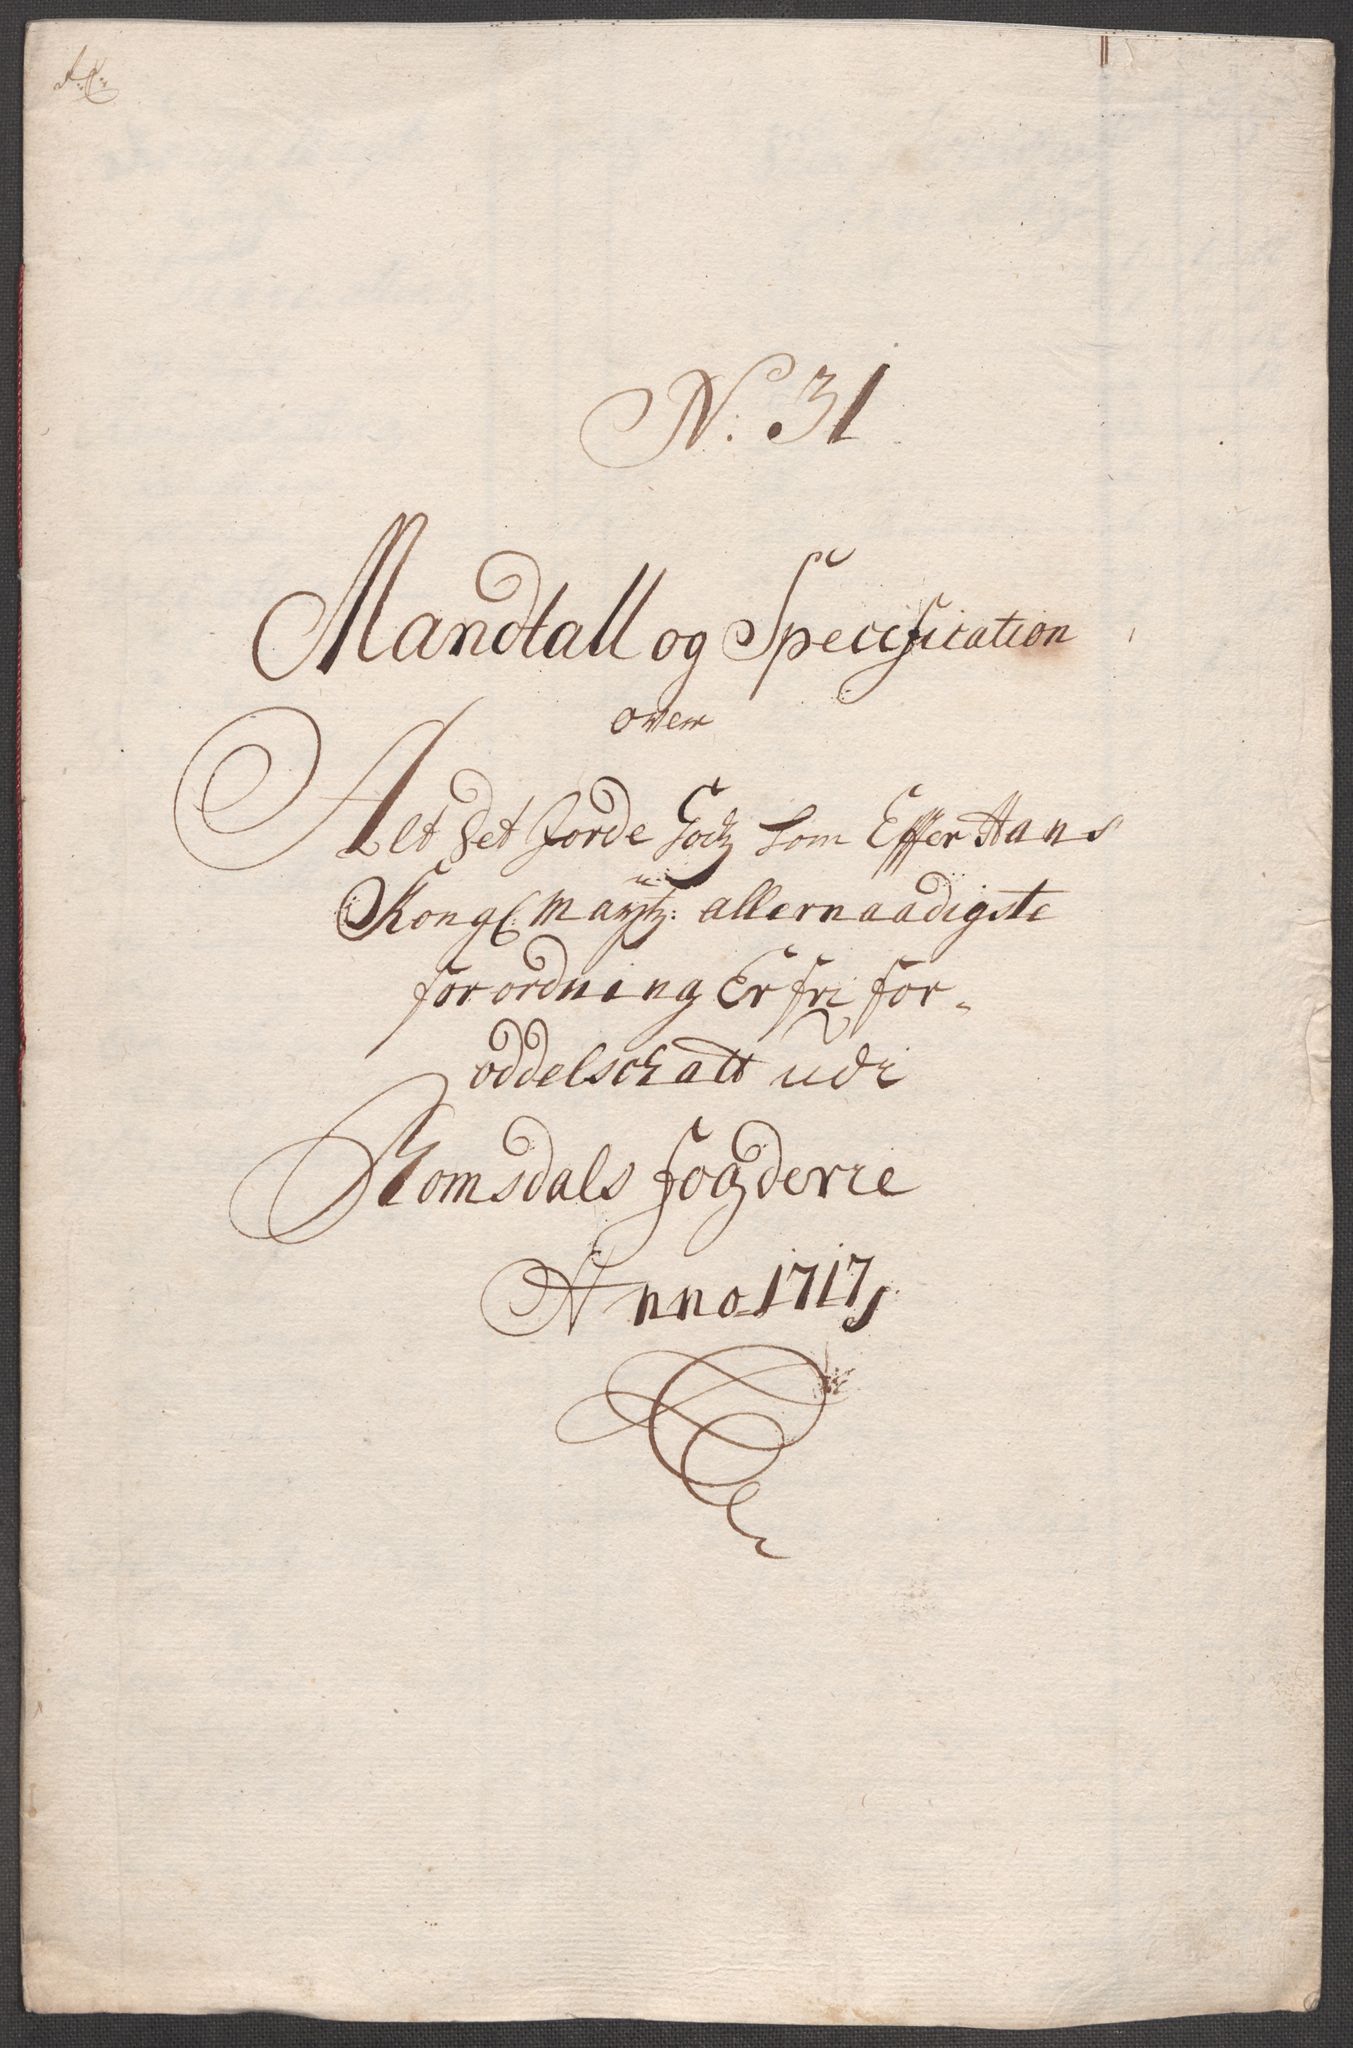 N. 31
Mandtall og Specification
over
Alt det Jorde Godz som Effter Hans
Kongl: Mayttz: allernaadigste
forordning Er fri for-
oddelschatt udi
Romsdals fogderie
Anno 1717